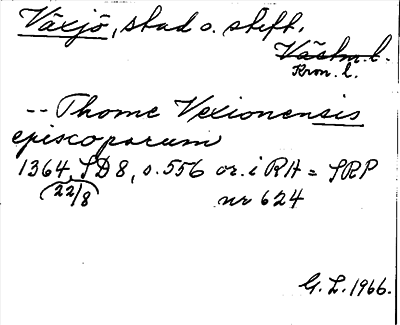 Växjö, stad o. stift.
Västm. l.
Kron. l.
-- Thome Vexionensis
episcoporum
1364, SD 8, s. 556 or. i RA = SRP
(22/8) nr 624
G. L. 1966.